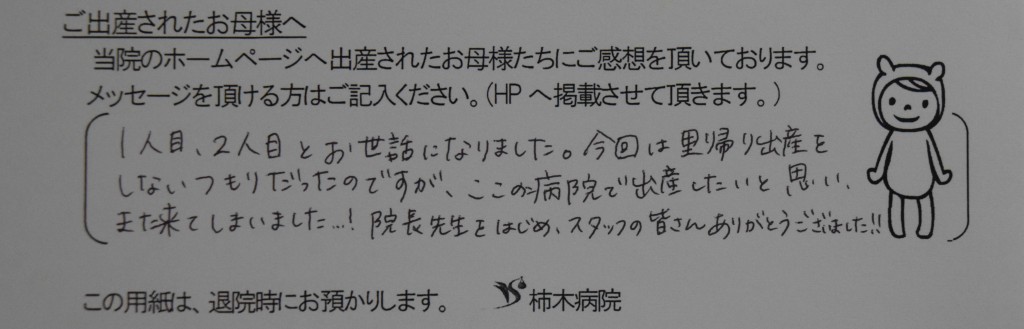 ご出産されたお母様へ
当院のホームページへ出産されたお母様たちにご感想を頂いております。
メッセージを頂ける方はご記入ください。（HPへ掲載させて頂きます。）
1人目、2人目とお世話になりました。今回は里帰り出産を
しないつもりだったのですが、ここの病院で出産したいと思い、
また来てしまいました…！院長先生をはじめ、スタッフの皆さんありがとうございました!!
この用紙は、退院時にお預かりします。 柿木病院